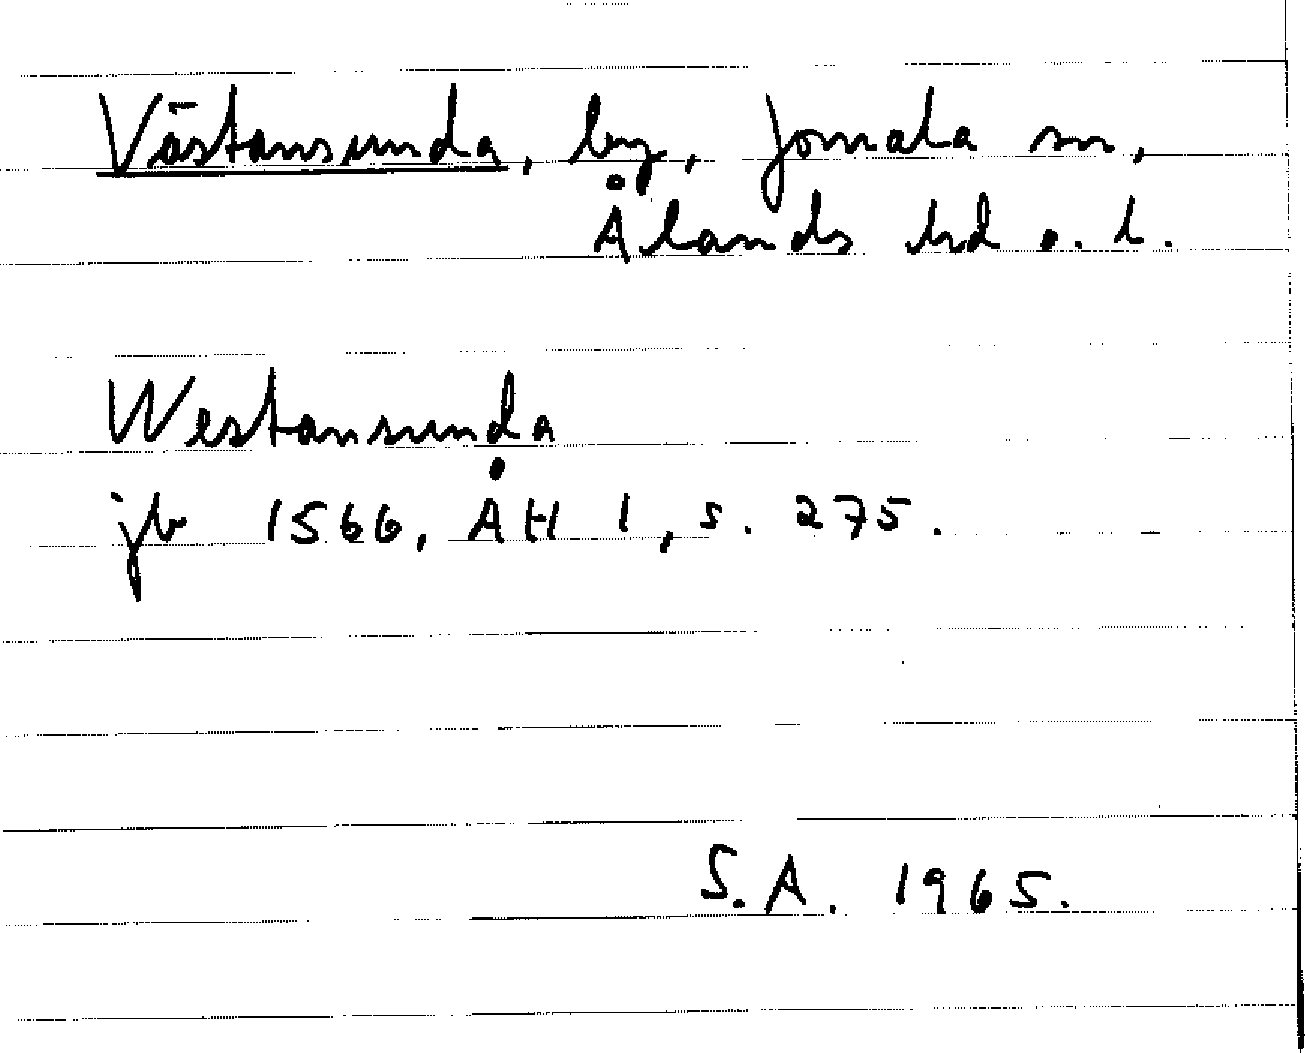 Västansunda, by, Jomala sn,
Ålands hd o. l.
Westansunda
jb 1566, ÅH 1, s. 275.
S.A. 1965.